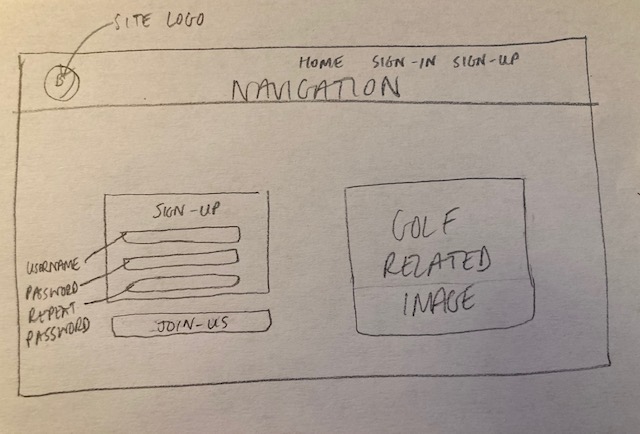 SITE LOGO
B
HOME SIGN-IN SIGN-UP
NAVIGATION
SIGN-UP
USERNAME
PASSWORD
REPEAT
PASSWORD
JOIN-US
GOLF
RELATED
IMAGE